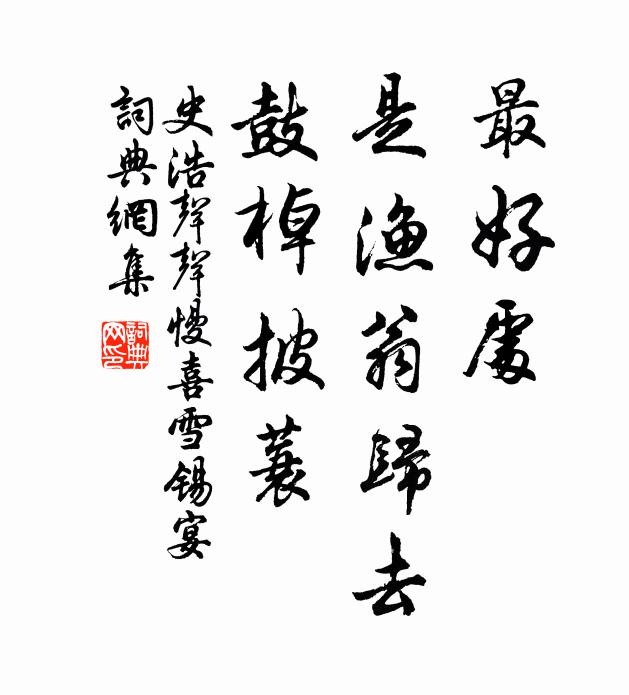 最好處
是漁翁歸去
鼓棹披蓑
史浩聲聲慢喜雪錫宴
詞典網集
詞典網印